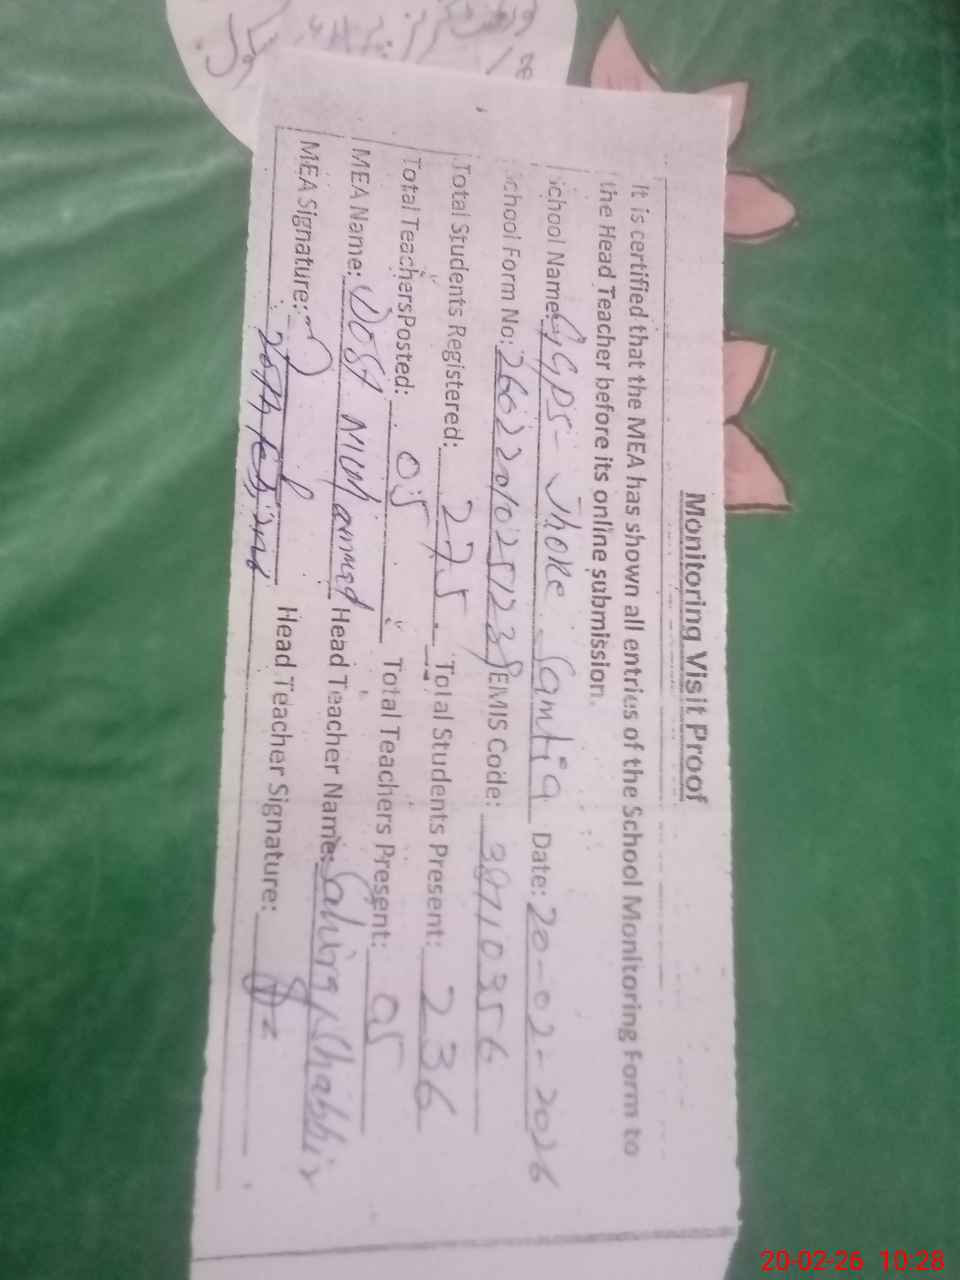 Monitoring Visit Proof
It is certified that the MEA has shown all entries of the School Monitoring Form to
the Head Teacher before its online submission.
School Name: GGPS- Jhoke Samtia Date: 20-02-2026
School Form No: EMIS Code:
Total Students Registered: 275 Total Students Present: 236
Total Teachers Posted: 05 Total Teachers Present: 05
MEA Name: Dost Muhammad Head Teacher Name: Shabbir
MEA Signature: Head Teacher Signature:
20th feb,
20-02-26 10:28